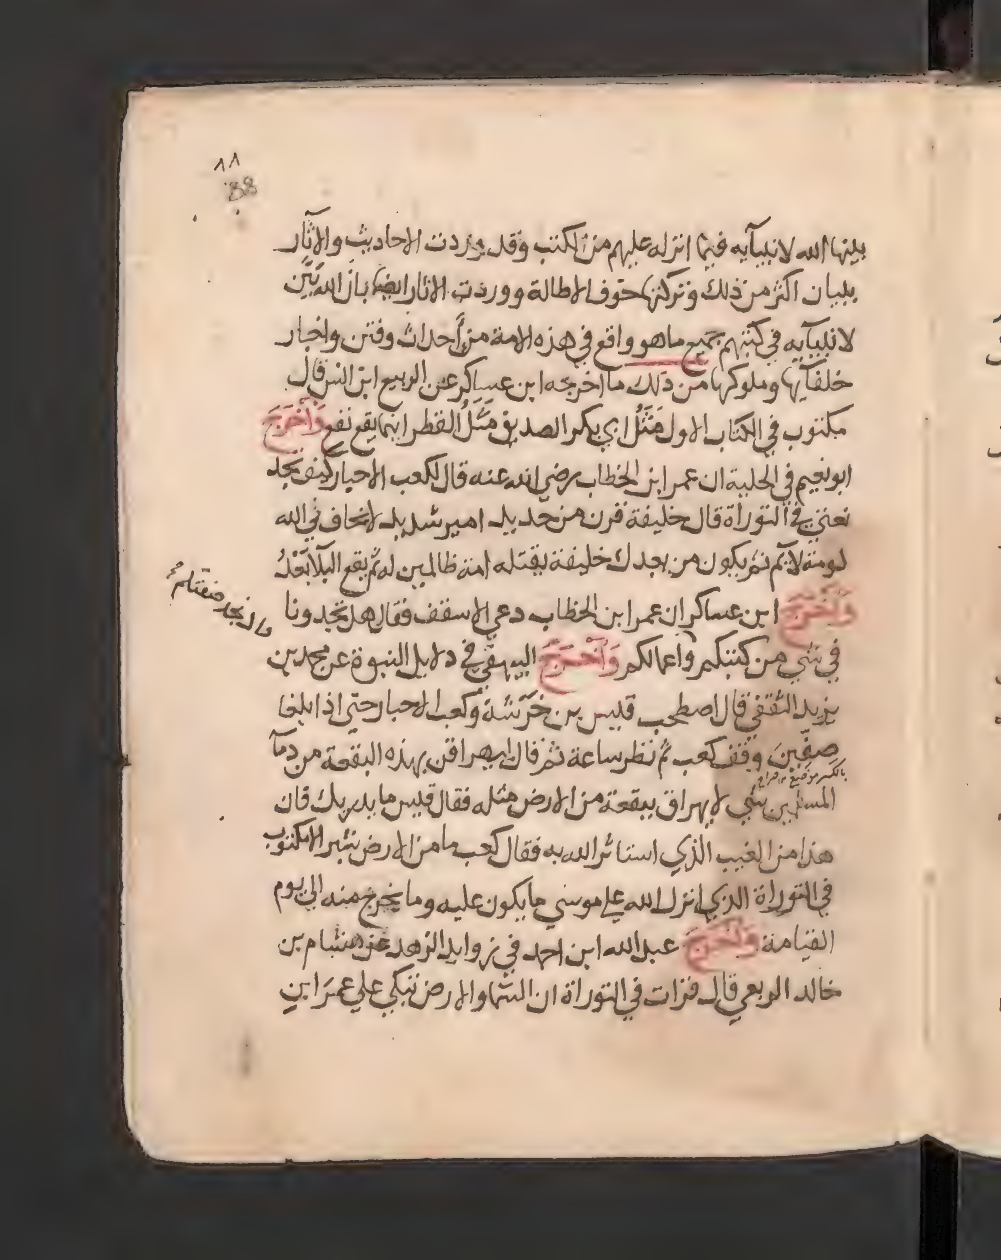 ١١
88
بينها الله لانبيآيه فيما انزله عليهم من الكتب وقد وردت الاحاديث والاثار
ببيان اكثر من ذلك وتركتها خوف الاطالة ووردت الاثار ايضا بان الله بَيَّن
لانبيآيه في كتبهم جميع ماهو واقع في هذه الامة من أحداث وفتن واخبار
خلفآيها وملوكها من ذلك ما اخرجه ابن عساكر عن الربيع ابن انس قال
مكتوب في الكتاب الاول مَثَلُ ابي بكر الصديق مَثَلُ القطر اينما يقع نفع وَأَخْرَجَ
ابو نعيم في الحلية ان عمر ابن الخطاب رضي الله عنه قال لكعب الاحبار كيف تجد
نعتي في التوراة قال خليفة قرن من حديد امير شديد لا يخاف في الله
لومة لائم ثم يكون من بعدك خليفة يقتله امة ظالمين له ثم يقع البلا بَعْدُ
وَأَخْرَجَ ابن عساكر ان عمر ابن الخطاب دعي الاسقف فقال هل تجدونا
قال نجد صفتكم
في شي من كتبكم واعمالكم وَأَخْرَجَ البيهقي في دلايل النبوة عن محمد بن
يزيد الثقفي قال اصطحب قيس بن خَرَشَة وكعب الاحبار حتي اذا بلغا
صِفّين وقف كعب ثم نظر ساعة ثم قال ليهراقن بهذه البقعة من دمآ
بالكسر موضع
المسلمين شي لا يهراق ببقعة من الارض مثله فقال قيس ما يدريك فان
هذا من الغيب الذي استاثر الله به فقال كعب ما من الارض شبر الا مكتوب
في التوراة الذي انزل الله علي موسي ما يكون عليه وما يخرج منه الي يوم
القيامة وَأَخْرَجَ عبد الله ابن احمد في زوايد الزهد عن هشام بن
خالد الربعي قال قرات في التوراة ان السَّما والارض تبكي علي عمَرَ ابن